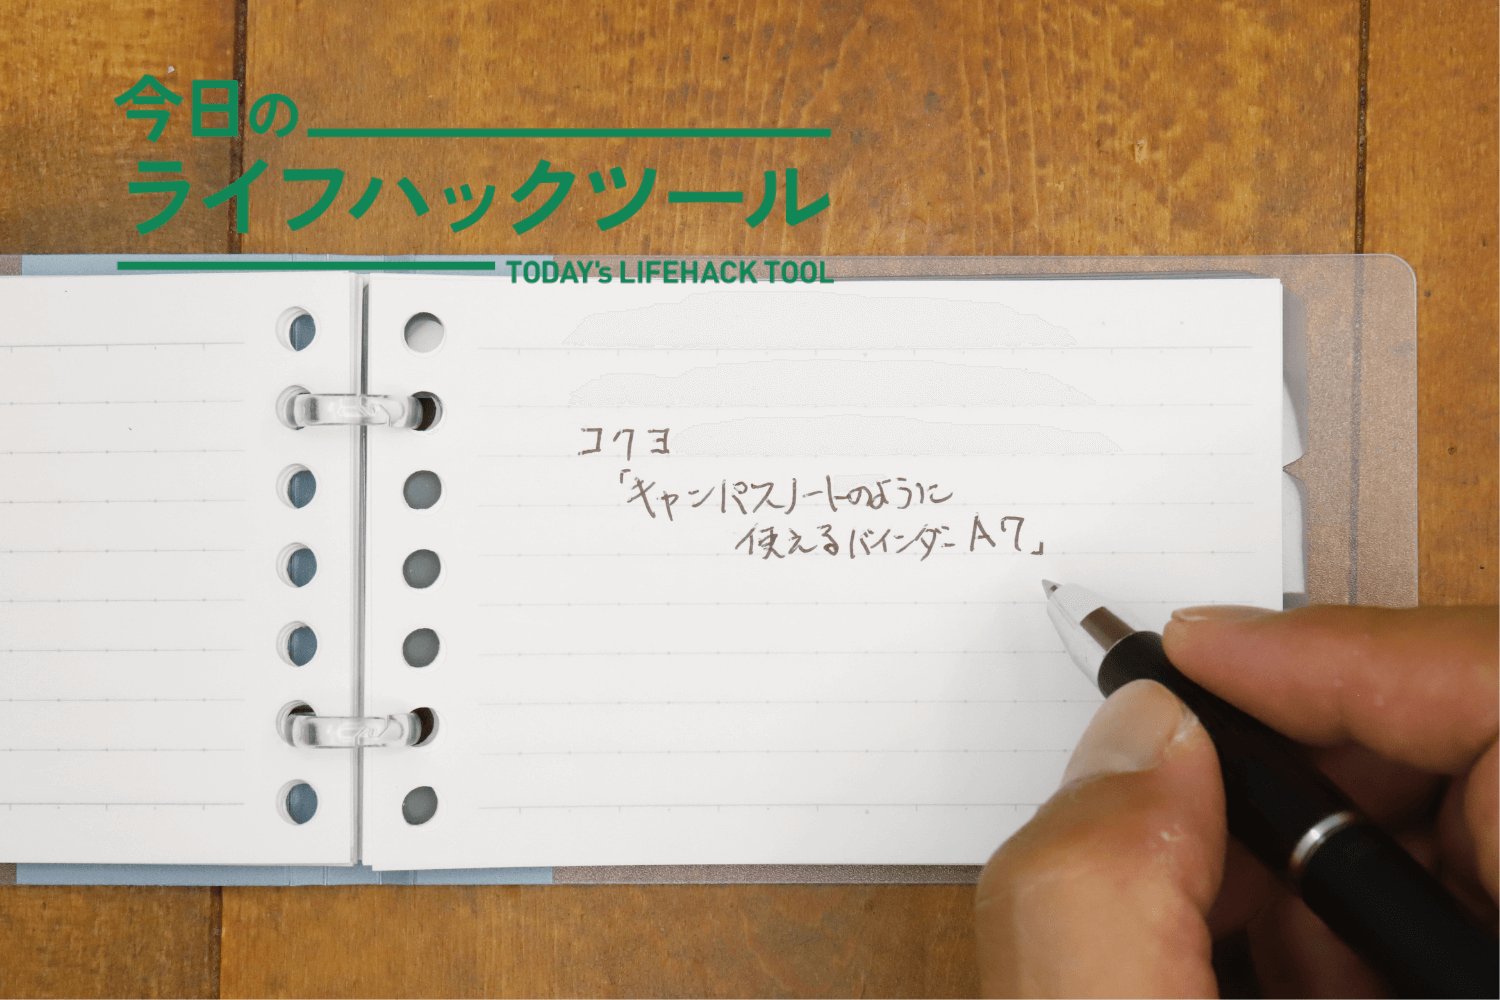 今日の
ライフハックツール
TODAY's LIFEHACK TOOL
コクヨ
「キャンパスノートのように
使えるバインダー A7」